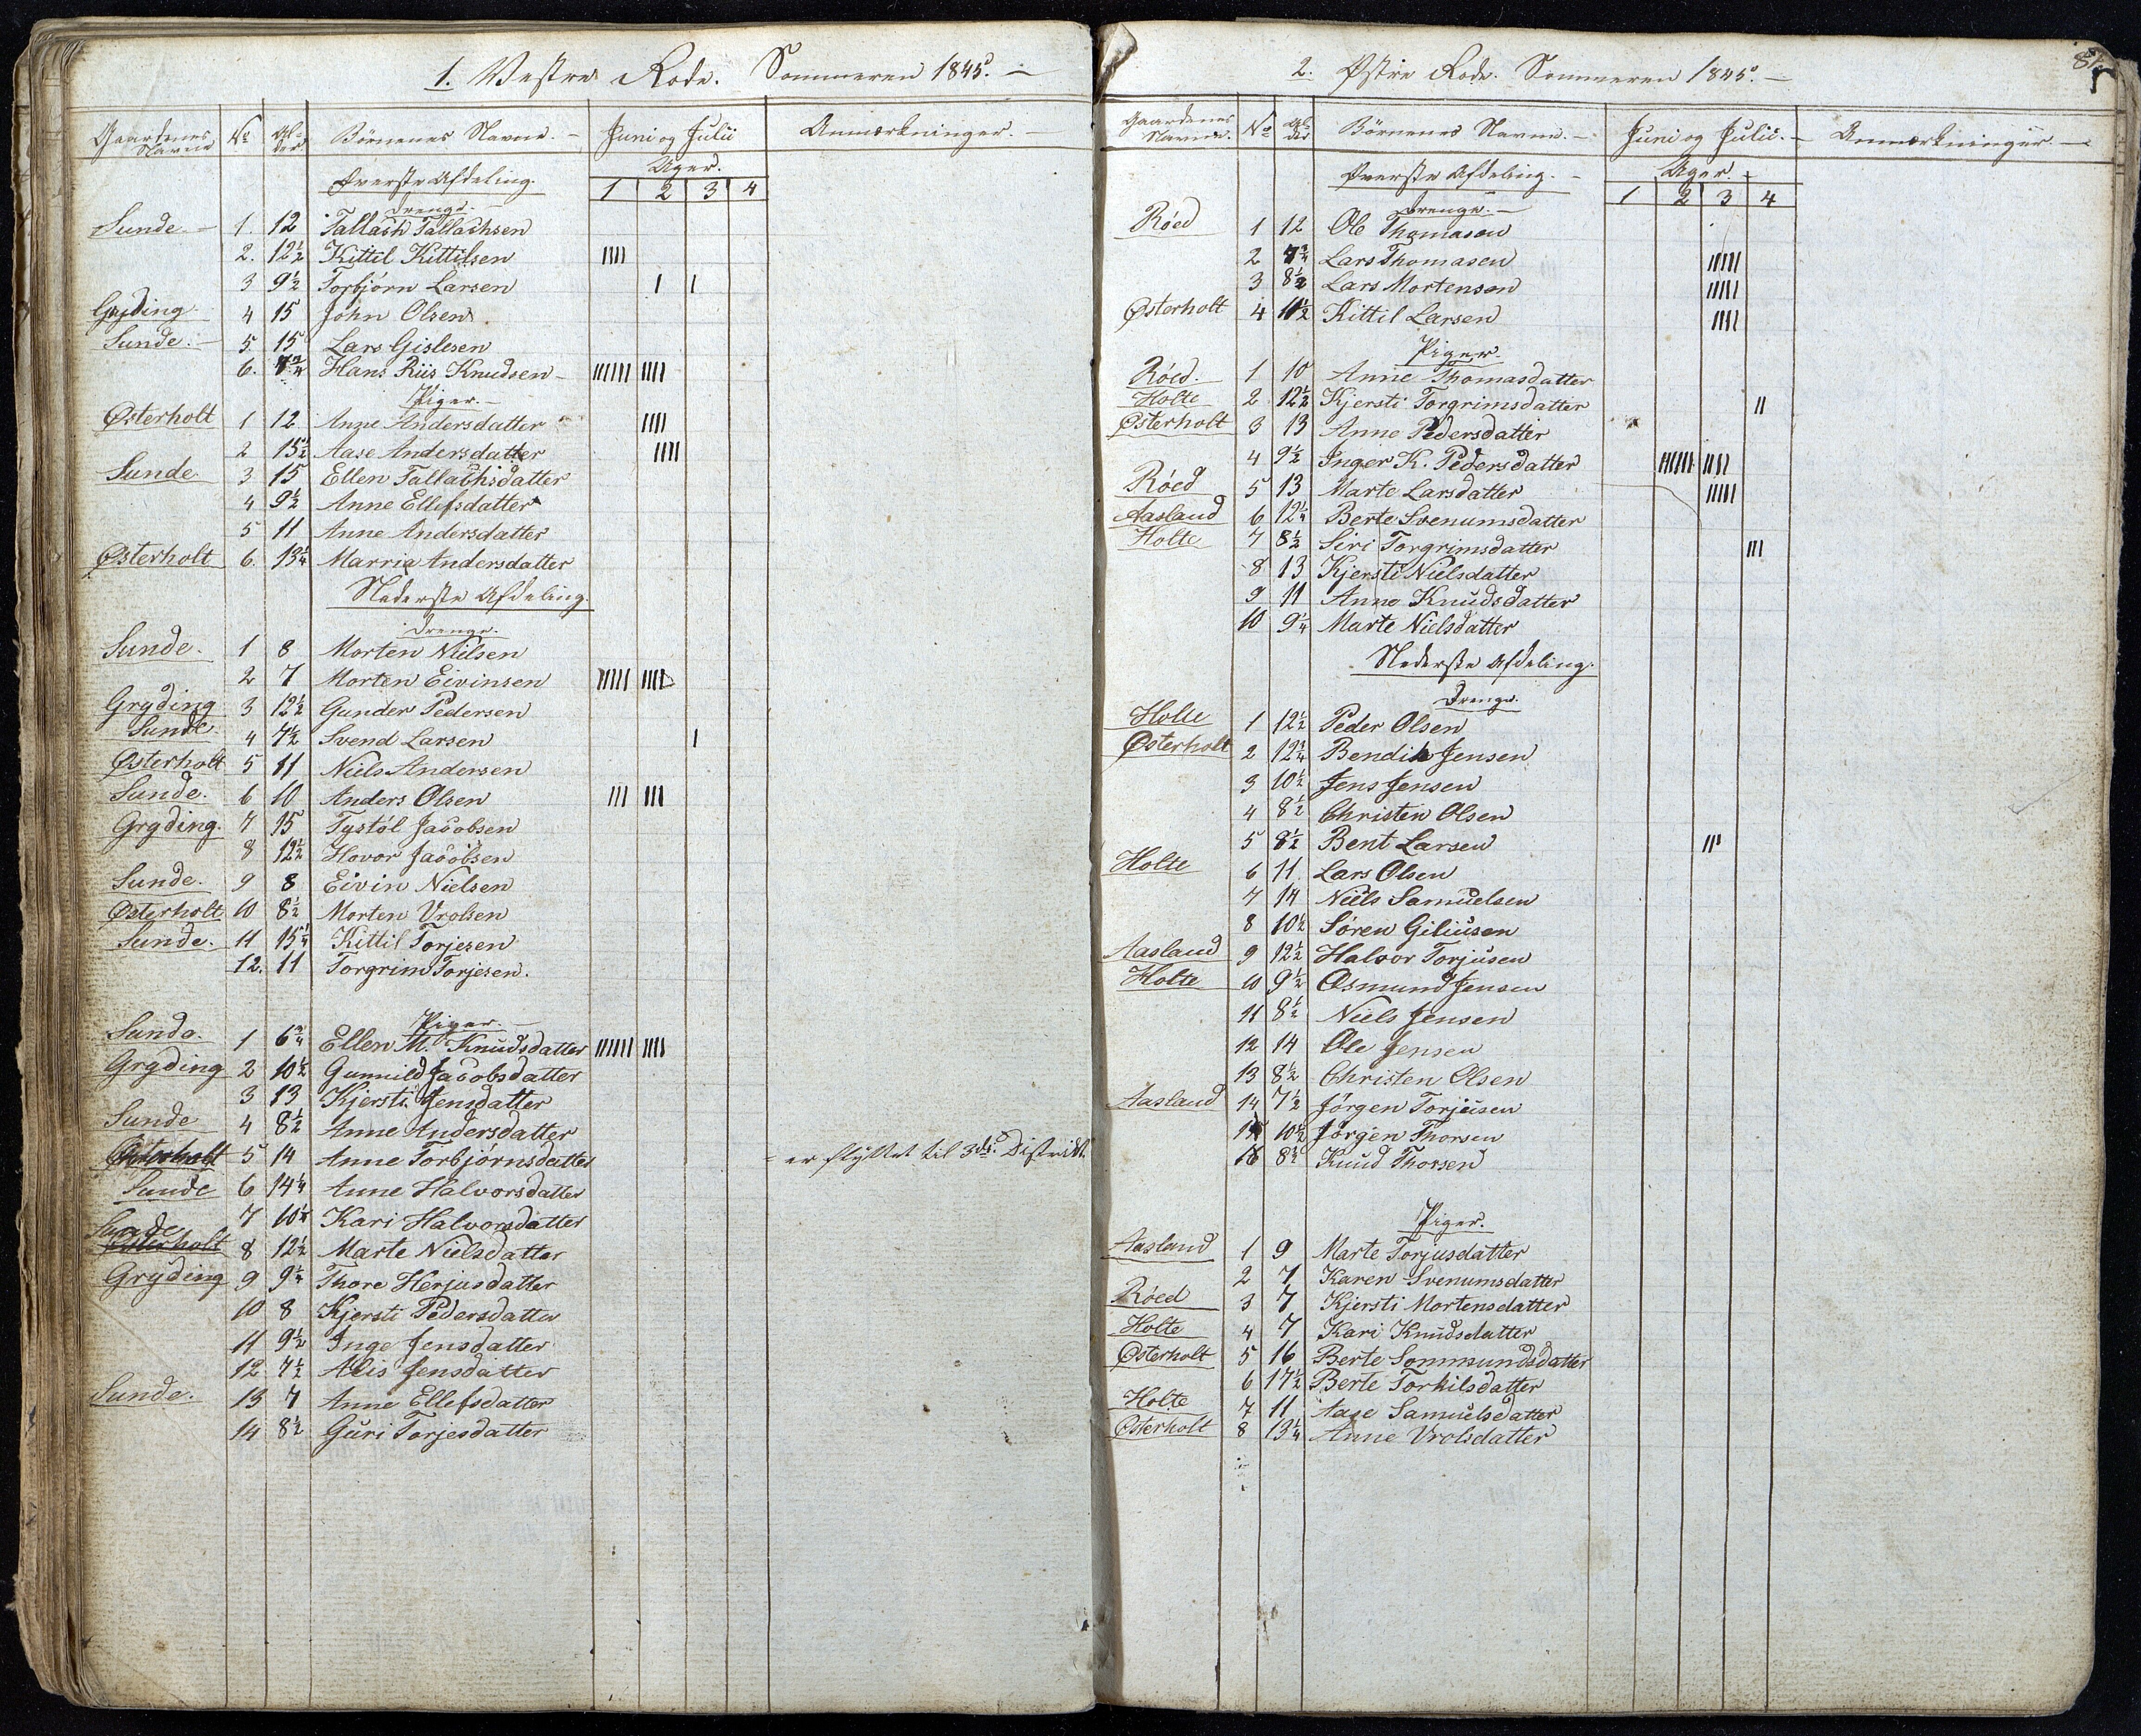 1. Vestre Rode. Sommeren 1845. —
Gaardenes Navne No Alder Børnenes Navne. — Juni og Julii Anmærkninger. —
Øverste Afdeling. Uger.
1 2 3 4
Drenge. —
Sunde. — 1. 12 Tallach Tallachsen
2. 12½ Kittil Kittilsen IIII
3 9½ Torbjørn Larsen I I
Gryding 4 15 John Olsen
Sunde. — 5. 15 Lars Gislesen
6. 7¾ Hans Riis Knudsen — IIIIII IIII
Piger. —
Østerholt 1 12 Anne Andersdatter IIII
2 15½ Aase Andersdatter IIII
Sunde 3 15 Ellen Tallachsdatter
4 9½ Anne Ellefsdatter
5 11 Anne Andersdatter
Østerholt 6. 13¼ Marria Andersdatter
Nederste Afdeling.
Drenge.
Sunde. 1 8 Morten Nilsen
2 7 Morten Eivinsen IIIII IIII
Gryding 3 12½ Gunder Pedersen
Sunde 4 7½ Svend Larsen I
Østerholt 5 11 Niels Andersen
Sunde. 6 10 Anders Olsen III III
Gryding. 7 15 Tystøl Jacobsen
8 12½ Hovor Jacobsen
Sunde. 9 8 Eivin Nielsen
Østerholt 10 8½ Morten Vrolsen
Sunde. 11 15¼ Kittil Torjesen
12. 11 Torgrim Torjesen.
Piger. —
Sunde. 1 6¾ Ellen M. Knudsdatter IIIIII IIII
Gryding 2 10½ Gunnild Jacobsdatter
3 13 Kjersti Jensdatter
Sunde 4 8½ Anne Andersdatter
Østerholt 5 14 Anne Torbjørnsdatter = er flyttet til 3die Distrikt.
Sunde 6 14¼ Anne Halvorsdatter
7 10¼ Kari Halvorsdatter
Sunde
Østerholt 8 12½ Marte Nielsdatter
Gryding 9 9¼ Thore Herjusdatter
10 8 Kjersti Pedersdatter
11 9½ Inge Jensdatter
12 7½ Alis Jensdatter
Sunde. 13 7 Anne Ellefsdatter
14 8½ Guri Torjesdatter
2. Østre Rode. Sommeren 1845. —
Gaardenes Navne. No Alder Børnenes Navne. — Juni og Julii. — Anmærkninger. —
Øverste Afdeling. — Uger. —
1 2 3 4
Drenge. —
Røed 1 12 Ole Thomasen
2 7¾ Lars Thomasen IIIII
3 8½ Lars Mortensen IIIII
Østerholt 4 11½ Kittil Larsen IIII
Piger.
Røed. 1 10 Anne Thomasdatter
Holte 2 12½ Kjersti Torgrimsdatter II
Østerholt 3 13 Anne Pedersdatter
4 9½ Inger K. Pedersdatter IIIIII IIII
Røed 5 13 Marte Larsdatter IIIII
Aasland 6 12¼ Berte Svenumsdatter
Holte 7 8½ Siri Torgrimsdatter III
8 13 Kjersti Nielsdatter
9 11 Anne Knudsdatter
10 9¼ Marte Nielsdatter
Nederste Afdeling.
Drenge.
Holte 1 12½ Peder Olsen
Østerholt 2 12¾ Bendik Jensen
3 10½ Jens Jensen
4 8½ Christen Olsen
5 8½ Bent Larsen III
Holte 6 11 Lars Olsen
7 14 Niels Samuelsen
8 10½ Søren Giliusen
Aasland 9 12½ Halvor Torjusen
Holte 10 9½ Osmund Jensen
11 8½ Niels Jensen
12 14 Ole Jensen
13 8½ Christen Olsen
Aasland 14 7½ Jørgen Torjusen
15 10½ Jørgen Thorsen
16 8½ Knud Thorsen
Piger.
Aasland 1 9 Marte Torjusdatter
2 7 Karen Svenumsdatter
Røed 3 7 Kjersti Mortensdatter
Holte 4 7 Kari Knudsdatter
Østerholt 5 16 Berte Sommundsdatter
6 17½ Berte Torkilsdatter
Holte 7 11 Aase Samuelsdatter
Østerholt 8 13¼ Anne Vrolsdatter